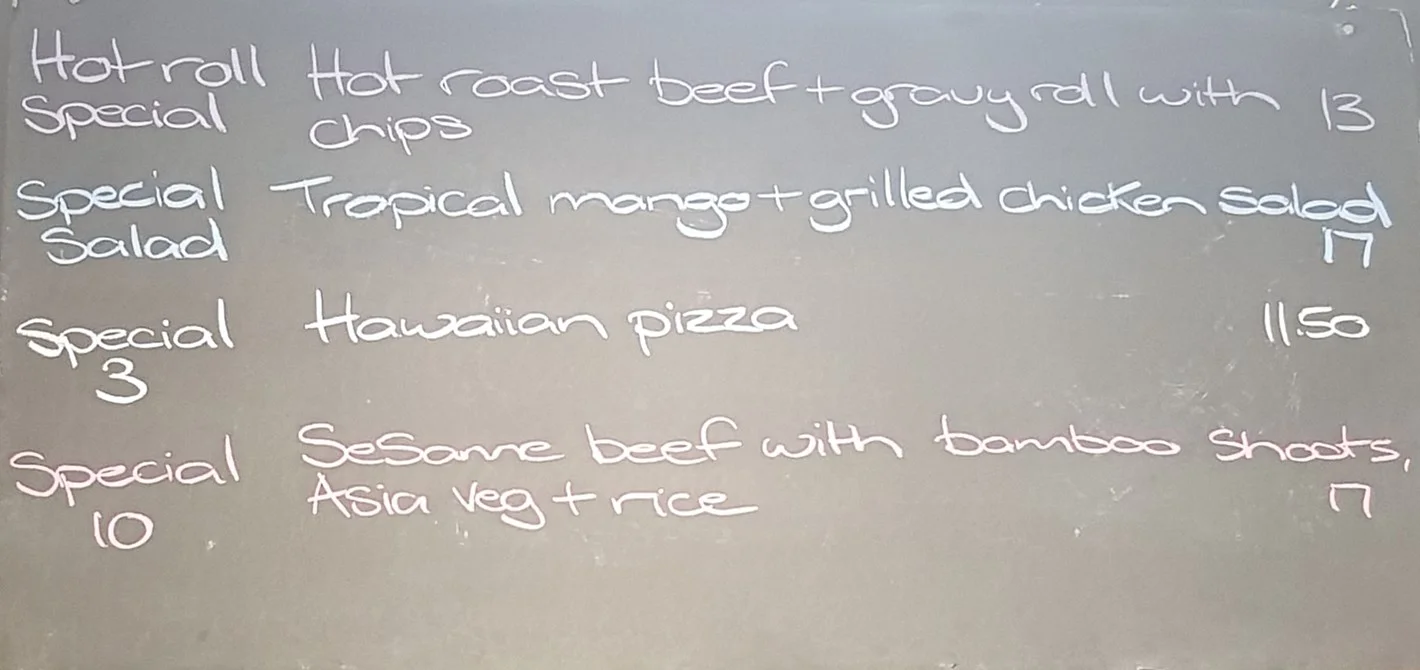 Hot roll Hot roast beef + gravy roll with 13
Special chips
Special Tropical mango + grilled chicken Salad
Salad 17
Special Hawaiian pizza 11.50
3
Special SeSame beef with bamboo Shoots,
10 Asia veg + rice 17